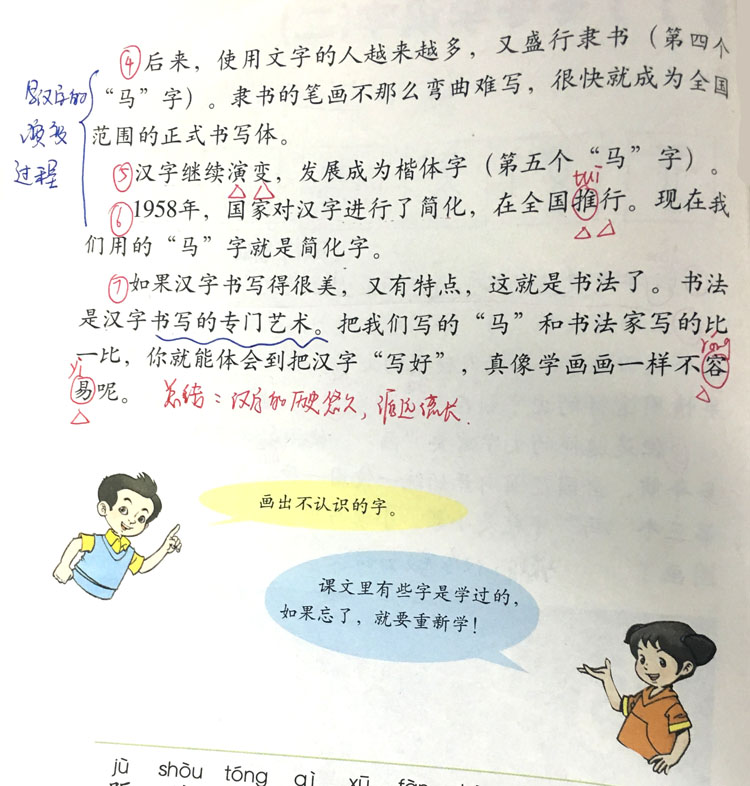 ④后来，使用文字的人越来越多，又盛行隶书（第四个
“马”字）。隶书的笔画不那么弯曲难写，很快就成为全国
范围的正式书写体。
汉字的
演变
过程
⑤汉字继续演变，发展成为楷体字（第五个“马”字）。
tuī
⑥1958年，国家对汉字进行了简化，在全国推行。现在我
们用的“马”字就是简化字。
⑦如果汉字书写得很美，又有特点，这就是书法了。书法
是汉字书写的专门艺术。把我们写的“马”和书法家写的比
róng
一比，你就能体会到把汉字“写好”，真像学画画一样不容
yì
易呢。
总结：汉字的历史悠久，源远流长.
画出不认识的字。
课文里有些字是学过的，
如果忘了，就要重新学！
jù shòu tóng qì xū